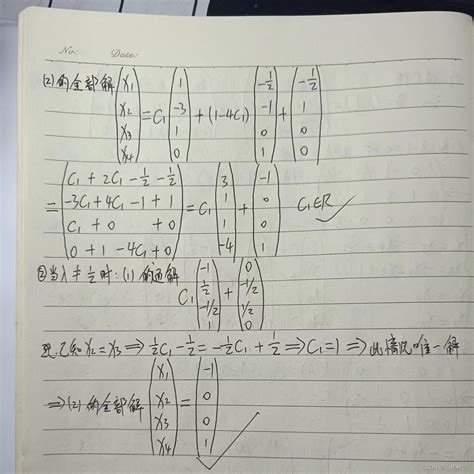 No: Date:
(2)的全部解 (x₁ x₂ x₃ x₄) = C₁ (1 -3 1 0) + (1-4C₁) (-1/2 -1 0 1) + (-1/2 1 0 0)
= (C₁ + 2C₁ - 1/2 - 1/2, -3C₁ + 4C₁ - 1 + 1, C₁ + 0 + 0, 0 + 1 - 4C₁ + 0) = C₁ (3 1 1 -4) + (-1 0 0 1) C₁∈R ✓
②当λ≠1/2时:(1)的通解 C₁ (-1 1/2 -1/2 1) + (0 -1/2 1/2 0)
已知 x₂=x₃ ⇒ 1/2C₁ - 1/2 = -1/2C₁ + 1/2 ⇒ C₁=1 ⇒ 此情况唯一解
⇒ (2)的全部解 (x₁ x₂ x₃ x₄) = (-1 0 0 1) ✓